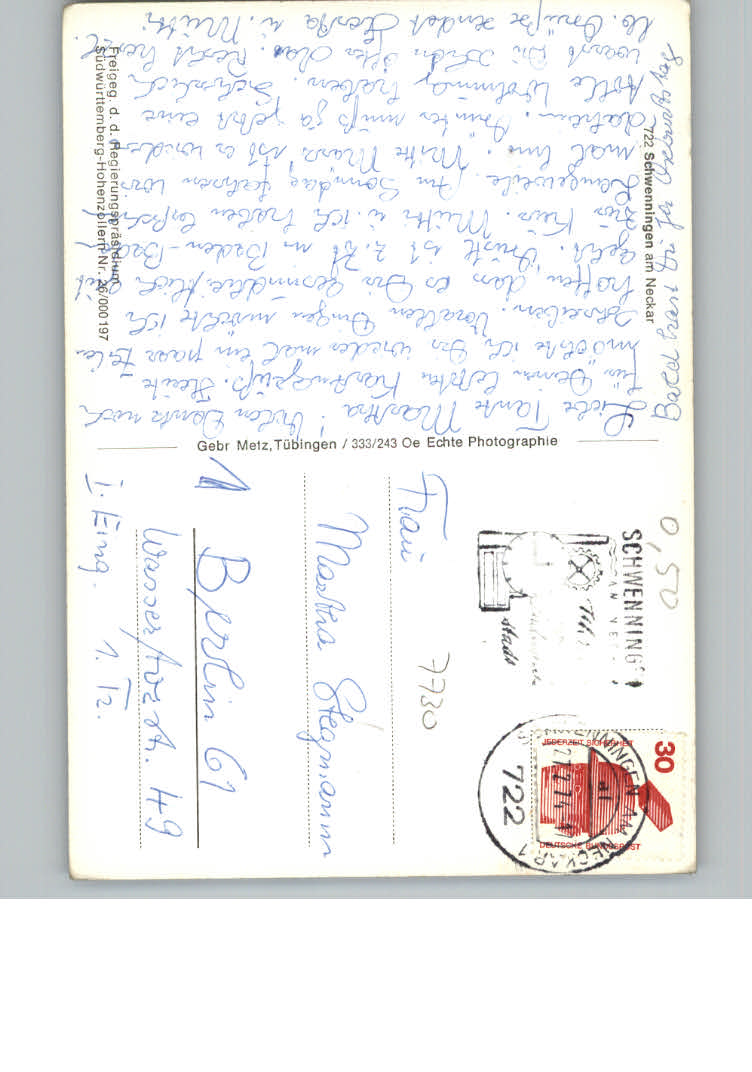 722 Schwenningen am Neckar
Liebe Tante Martha! Vielen Dank noch
für Deinen letzten Kartengruß. Heute
möchte ich Dir wieder mal ein paar Zeilen
schreiben. Vor allen Dingen möchte ich
hoffen, das es Dir gesundheitlich gut
geht. Trude ist z. Zt. in Baden-Baden
zur Kur. Mutti u. ich haben
Langeweile. Am Sonntag fahren wir
mal hin. Mitte März ist es wieder
daheim. muß ja jetzt eine
tolle Wohnung haben. Sicherlich
warst Du schon öfter da. Recht herzl.
lb. Grüße sendet u. Mutti.
Freigeg. d. d. Regierungspräsidium
Südwürttemberg-Hohenzollern Nr. 26/000197
Gebr Metz, Tübingen / 333/243 Oe Echte Photographie
0,50
SCHWENNINGEN
AM NECKAR
Stadt
30
JEDERZEIT SICHERHEIT
DEUTSCHE BUNDESPOST
SCHWENNINGEN AM NECKAR 1
722
7730
Frau
Martha Stegmann
1 Berlin 61
Wassertorstr. 49
I. Eing. 1. Tr.